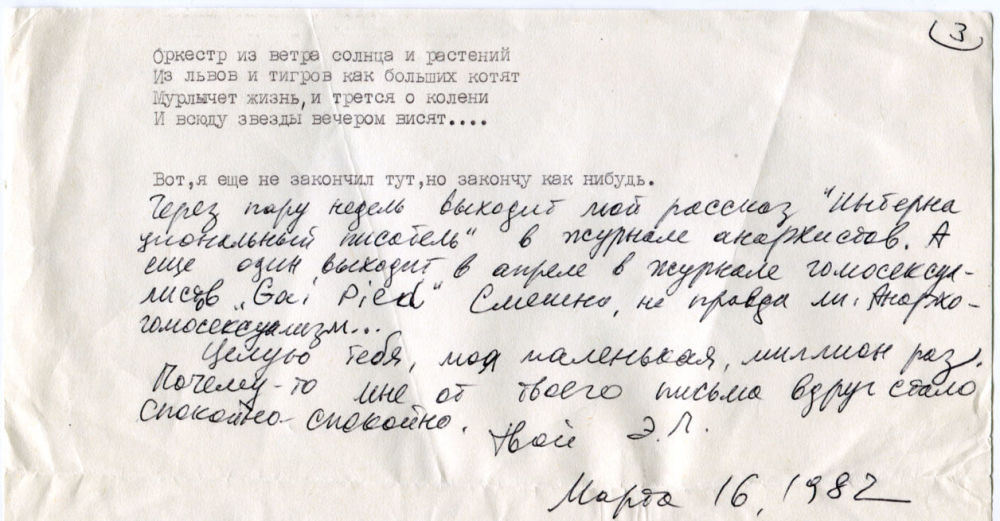 3
Оркестр из ветра солнца и растений
Из львов и тигров как больших котят
Мурлычет жизнь,и трется о колени
И всюду звезды вечером висят....
Вот,я еще не закончил тут,но закончу как нибудь.
Через пару недель выходит мой рассказ "Интерна
циональный писатель" в журнале анархистов. А
еще один выходит в апреле в журнале гомосексуа-
листов „Gai Pied" Смешно, не правда ли. Анархо-
гомосексуализм...
Целую тебя, моя маленькая, миллион раз.
Почему-то мне от твоего письма вдруг стало
спокойно-спокойно.
Твой Э.Л.
Марта 16, 1982